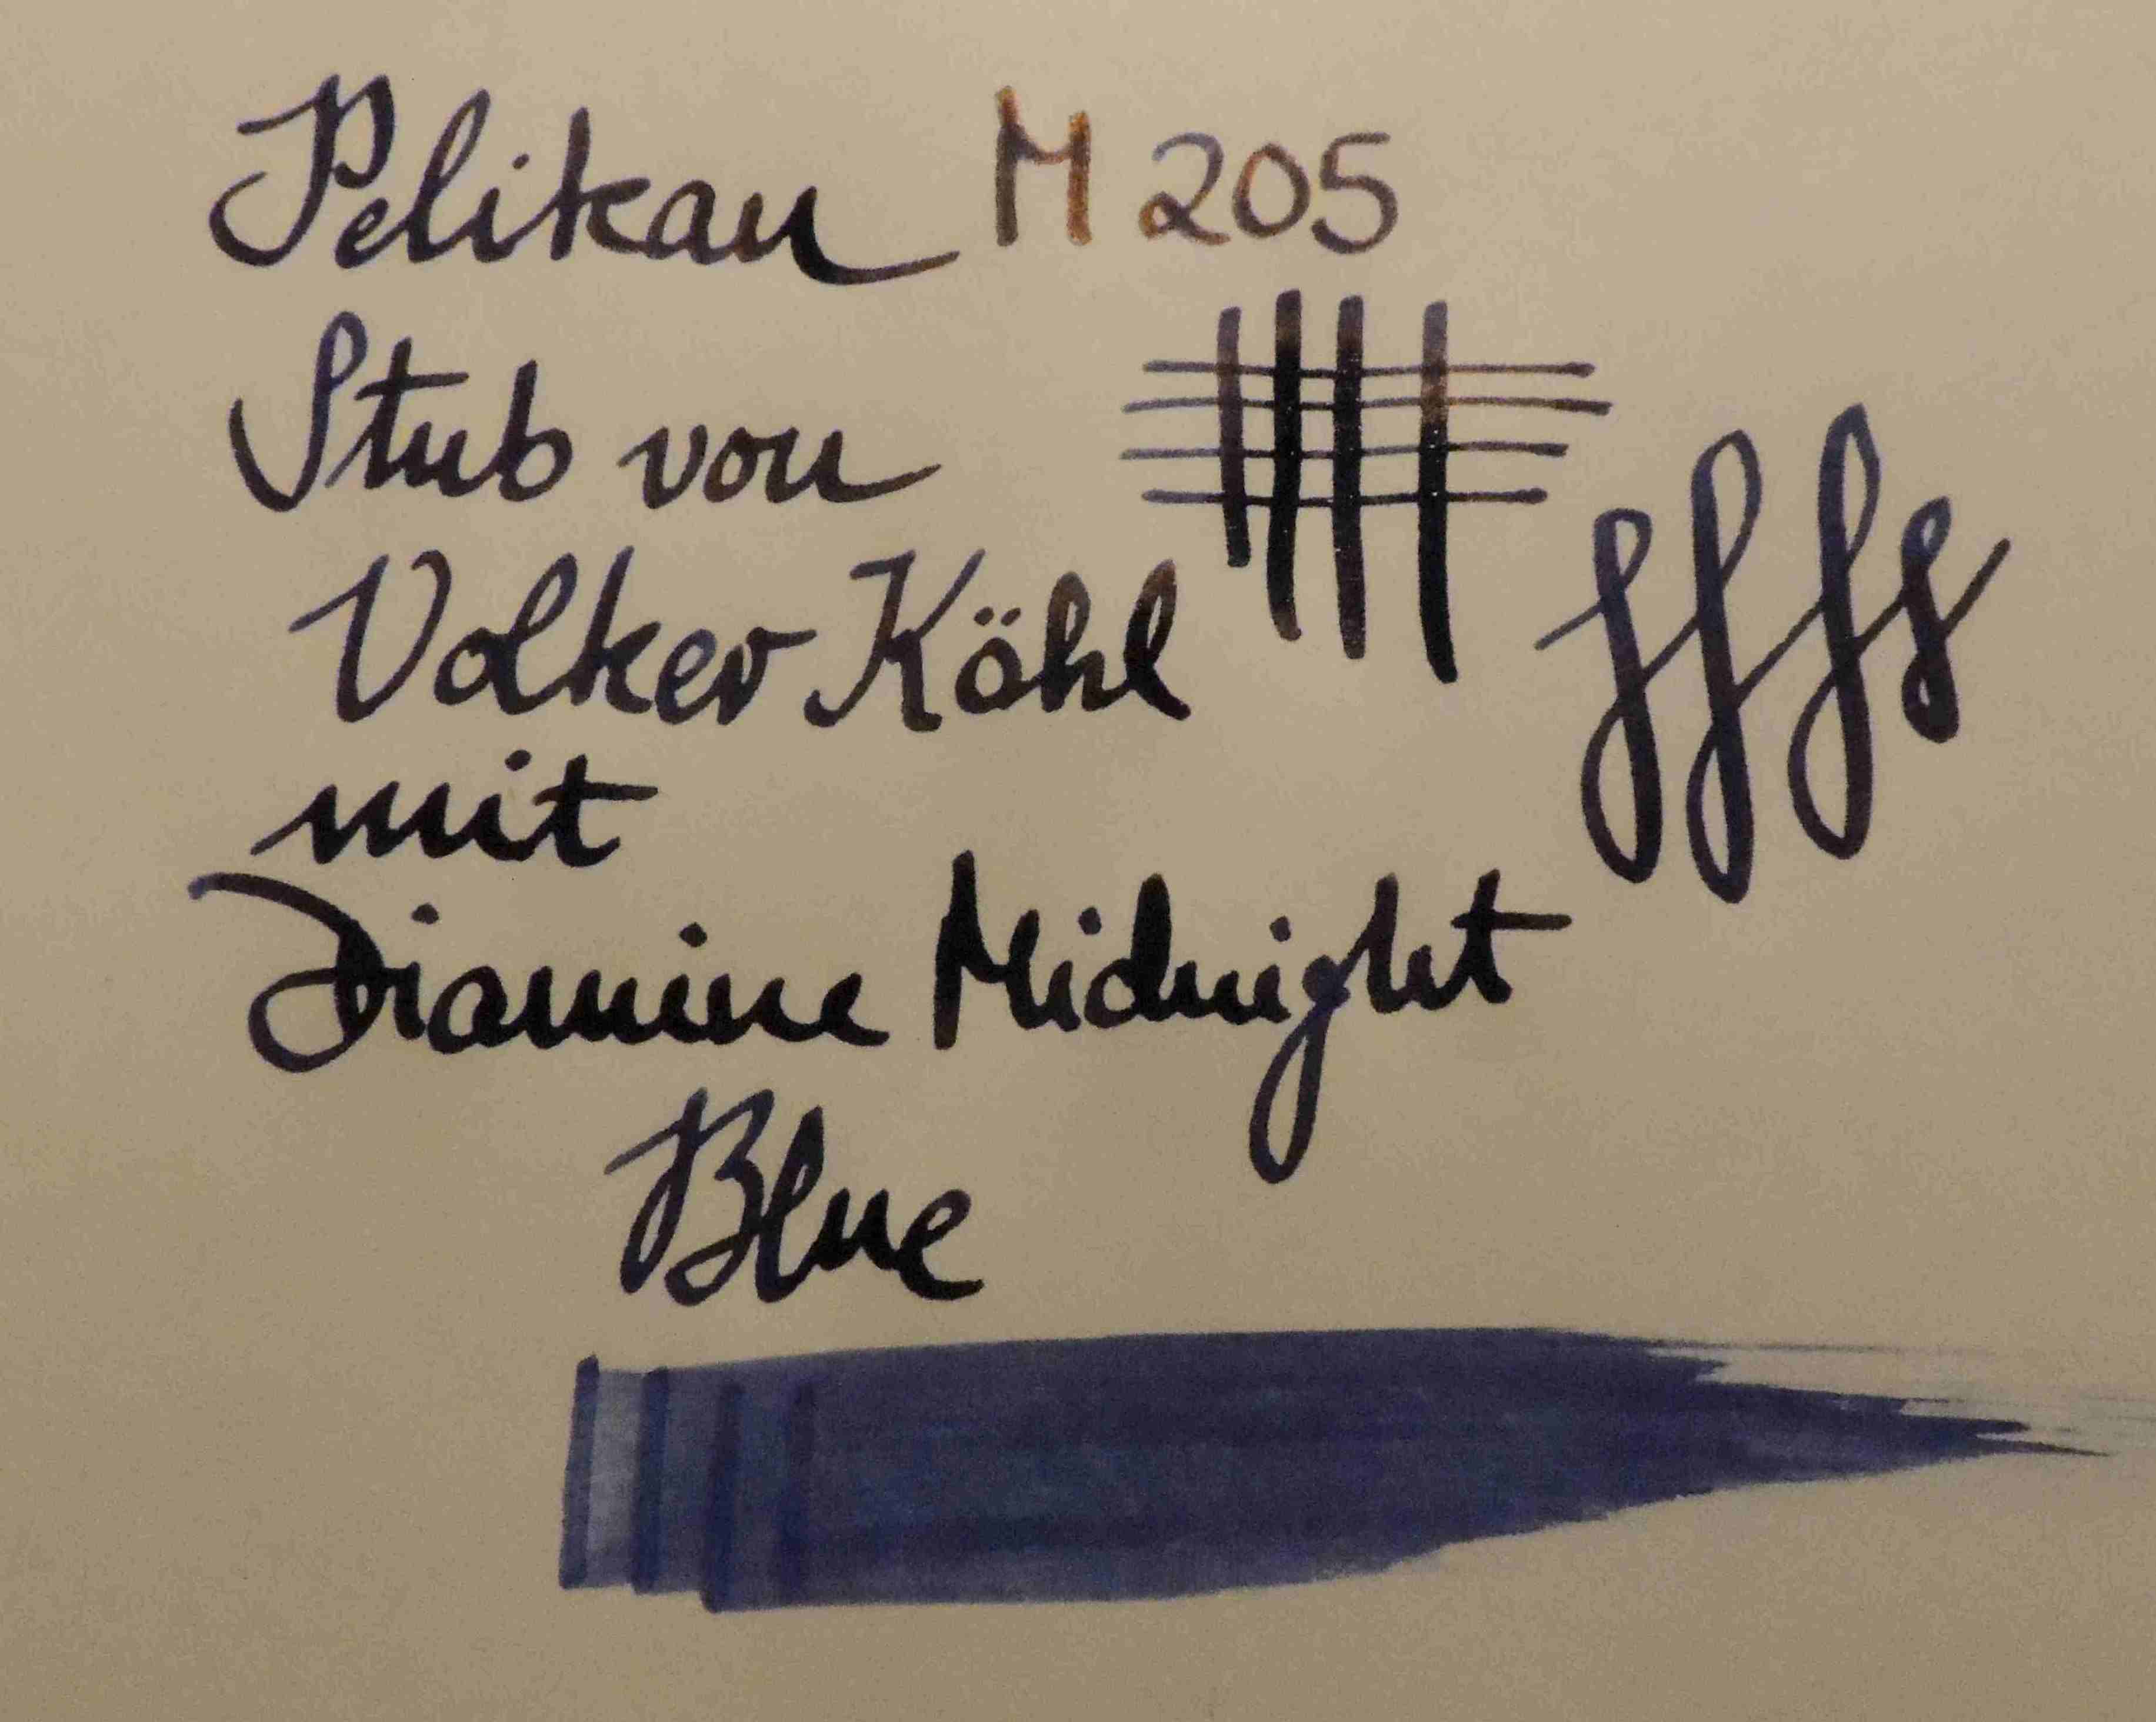 Pelikan M 205
Stub von
Volker Köhl
mit
Diamine Midnight
Blue